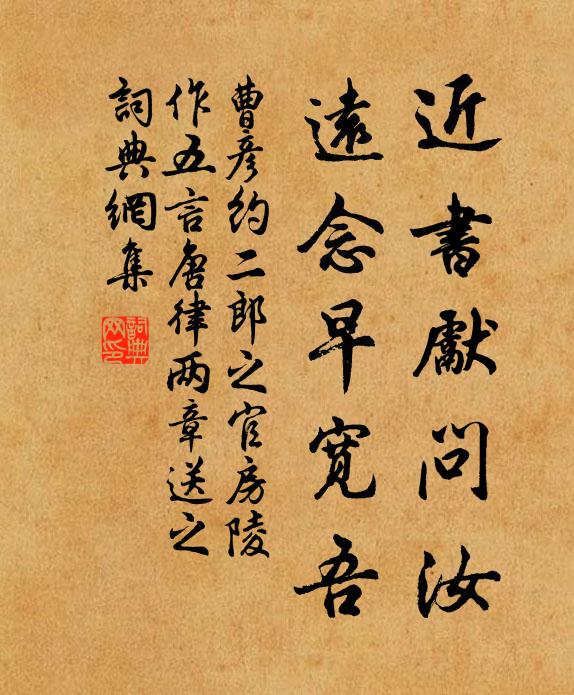 近書獻問汝
遠念早寬吾
曹彦約二郎之官房陵
作五言唐律两章送之
詞典網集
詞典网印